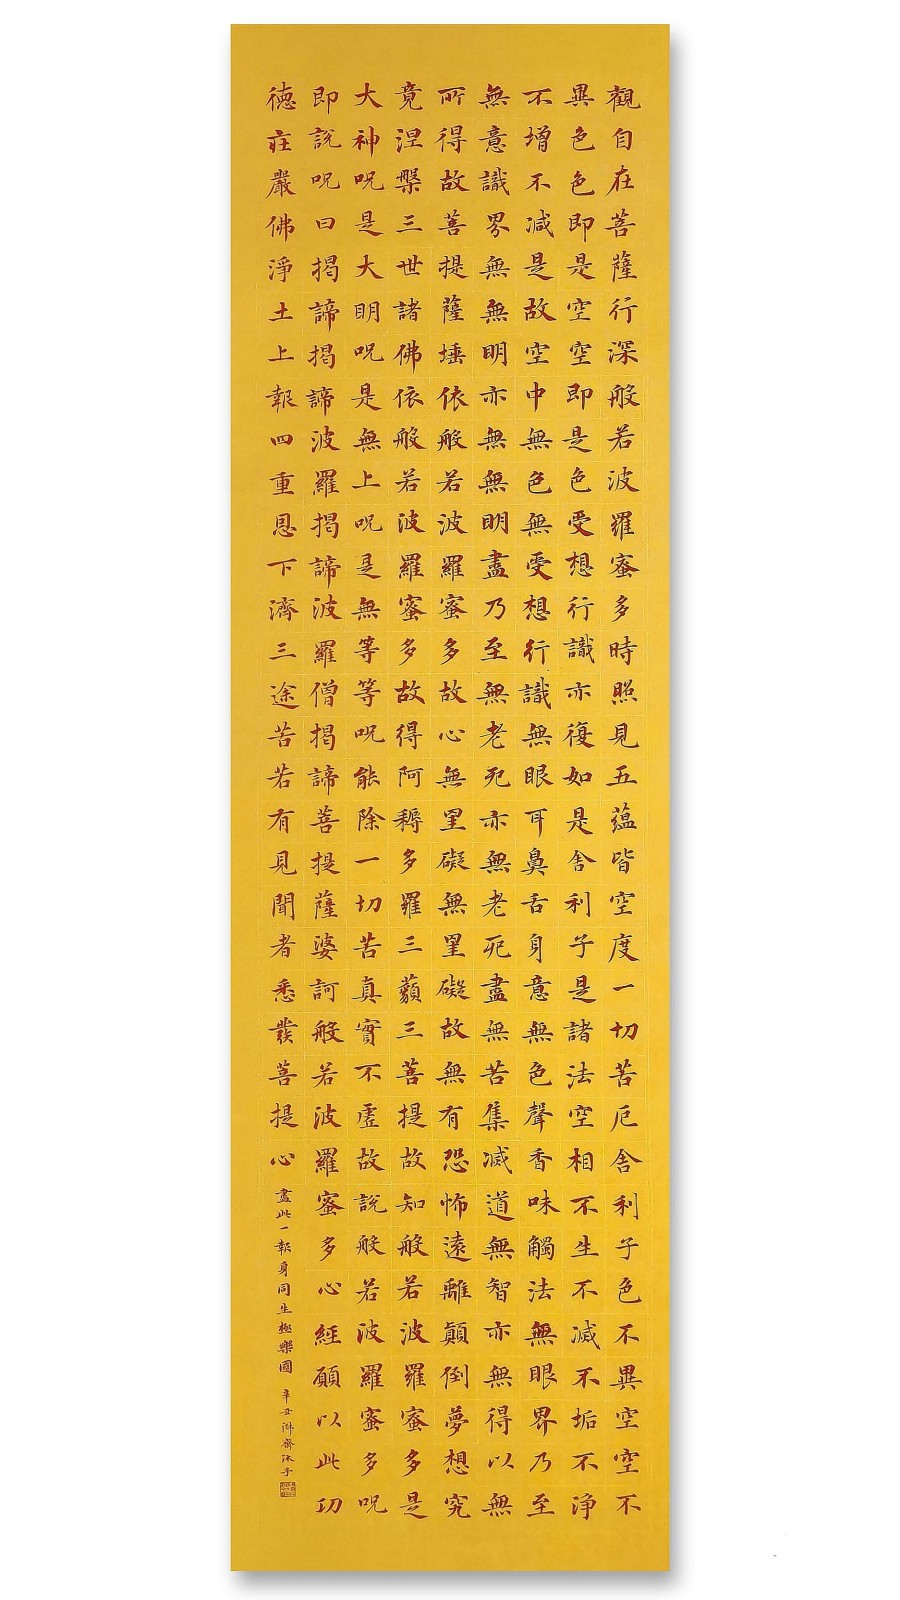 觀自在菩薩行深般若波羅蜜多時照見五蘊皆空度一切苦厄舍利子色不異空空不
異色色即是空空即是色受想行識亦復如是舍利子是諸法空相不生不滅不垢不淨
不增不減是故空中無色無受想行識無眼耳鼻舌身意無色聲香味觸法無眼界乃至
無意識界無無明亦無無明盡乃至無老死亦無老死盡無苦集滅道無智亦無得以無
所得故菩提薩埵依般若波羅蜜多故心無罣礙無罣礙故無有恐怖遠離顛倒夢想究
竟涅槃三世諸佛依般若波羅蜜多故得阿耨多羅三藐三菩提故知般若波羅蜜多是
大神呪是大明呪是無上呪是無等等呪能除一切苦真實不虛故說般若波羅蜜多呪
即說呪曰揭諦揭諦波羅揭諦波羅僧揭諦菩提薩婆訶般若波羅蜜多心經願以此功
德莊嚴佛淨土上報四重恩下濟三途苦若有見聞者悉發菩提心 盡此一報身同生極樂國 辛丑 齋沐手